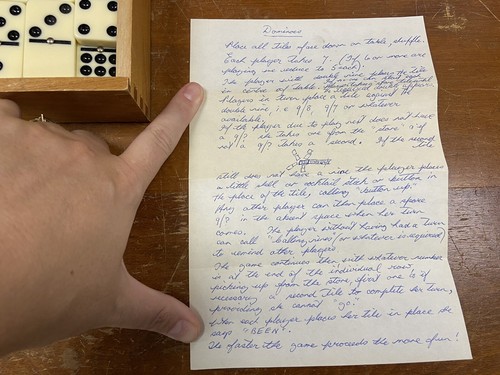 Dominoes
Place all tiles face down on table, shuffle.
Each player takes 7. (If 6 or more are
playing we reduce to 5 each)
The player with double nine places the tile
in centre of table.
Players in turn place a tile against the
double nine, i.e 9/8, 9/7 or whatever
available.
If the player due to play next does not have
a 9/? she takes one from the "store" & if
not a 9/? takes a second. If the second tile
still does not have a nine the player places
a little shell or cocktail stick or button in
the place of the tile, calling "button up"
Any other player can then place a spare
9/? in the absent space when her turn
comes. The player without having had a turn
can call "calling nines (or whatever is required)
to remind other players
The game continues then with whatever number
is at the end of the individual "rows",
picking up from the store, first one & if
necessary a second tile to complete her turn,
providing she cannot "go".
When each player places her tile in place she
says "BEEN".
The faster the game proceeds the more fun!